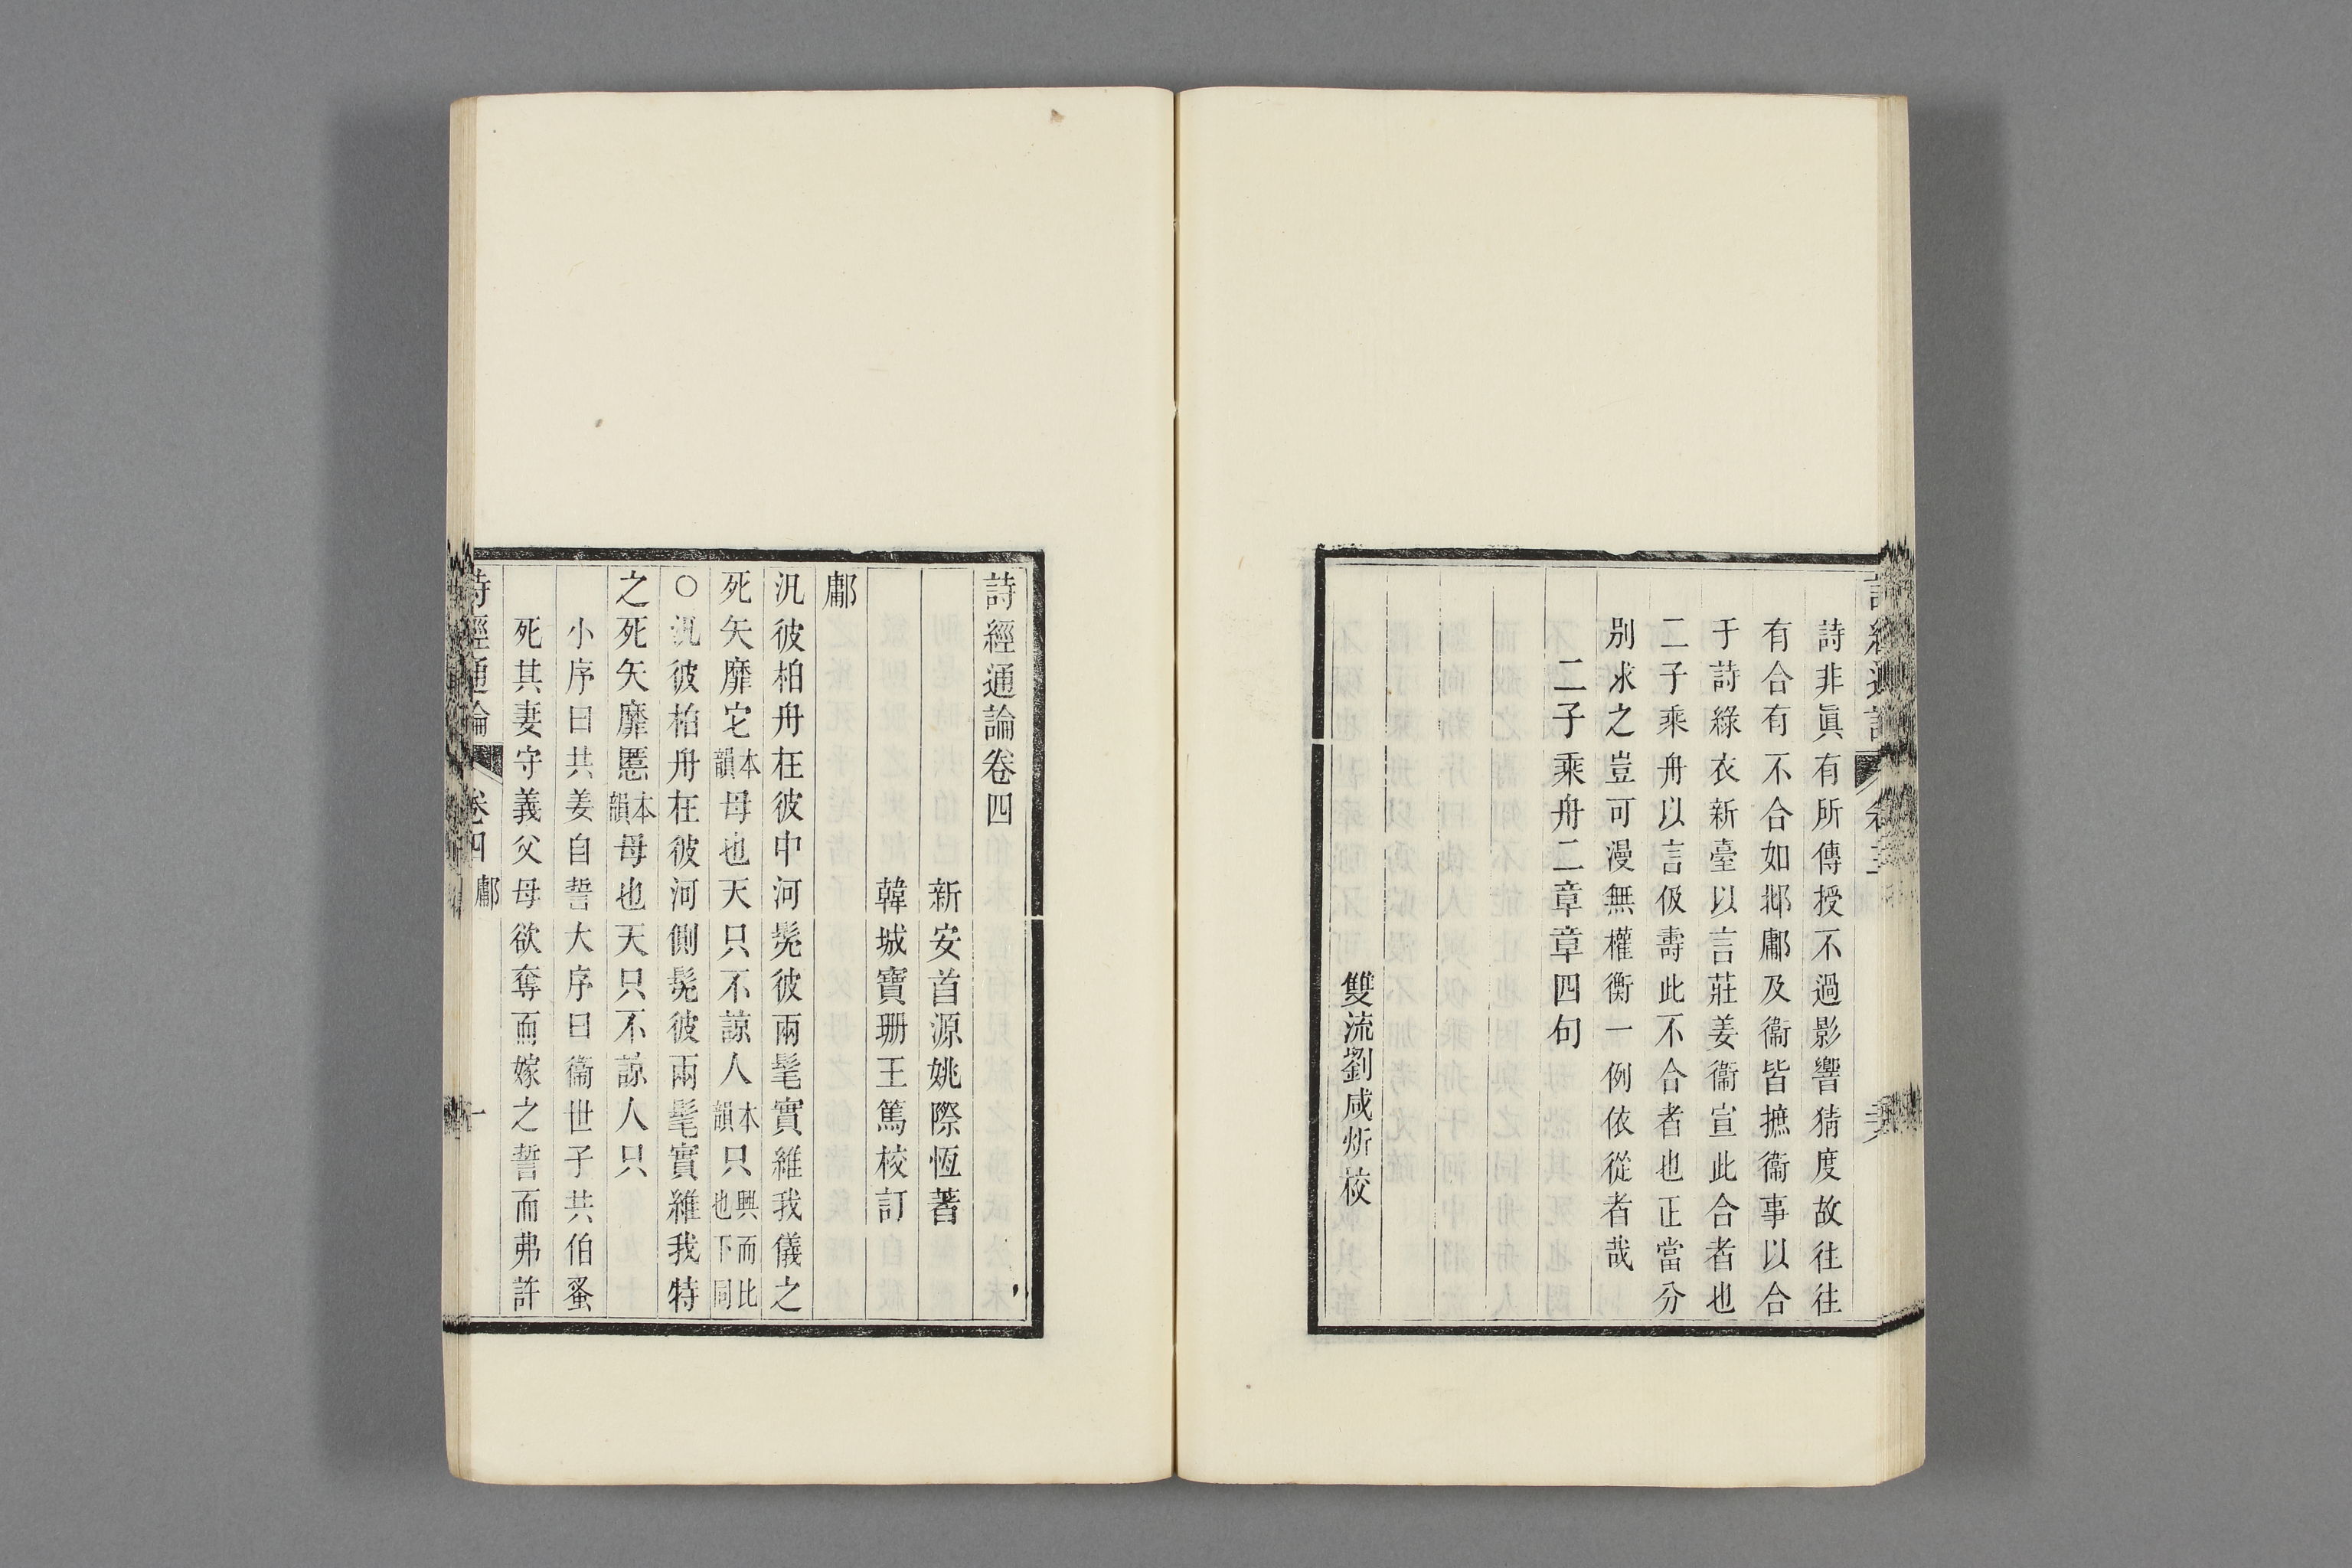 詩非眞有所傳授不過影響猜度故往往
有合有不合如邶鄘及衞皆摭衞事以合
于詩綠衣新臺以言莊姜衞宣此合者也
二子乘舟以言伋壽此不合者也正當分
別求之豈可漫無權衡一例依從者哉
二子乘舟二章章四句
雙流劉咸炘校
詩經通論卷四
新安首源姚際恆著
韓城寶珊王篤校訂
鄘
汎彼柏舟在彼中河髧彼兩髦實維我儀之
死矢靡它本韻母也天只不諒人本韻只興而比也下同
○汎彼柏舟在彼河側髧彼兩髦實維我特
之死矢靡慝本韻母也天只不諒人只
小序曰共姜自誓大序曰衞世子共伯蚤
死其妻守義父母欲奪而嫁之誓而弗許
詩經通論 卷四 鄘 一